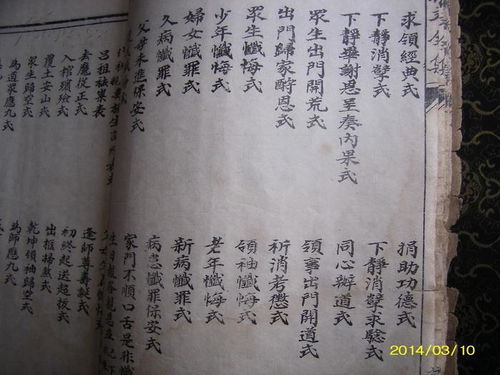 求領經典式
捐助功德式
下靜消孽式
下靜消孽求懸式
下靜華謝恩呈奏內果式
同心辦道式
眾生出門開荒式
領事出門開道式
出門歸家酧恩式
祈消考懲式
眾生懺悔式
領袖懺悔式
少年懺悔式
老年懺悔式
婦女懺罪式
新病懺罪式
久病懺罪式
病危懺罪保安式
父母未進保安式
家門不順口舌是非懺
呂祖族某表
去魔從正式
入棺殯殮式
初終起送超拔式
覆土安山式
出柩捲款式
眾生歸空式
乾坤領袖歸空式
為道眾應九式
為師應九式
2014/03/10